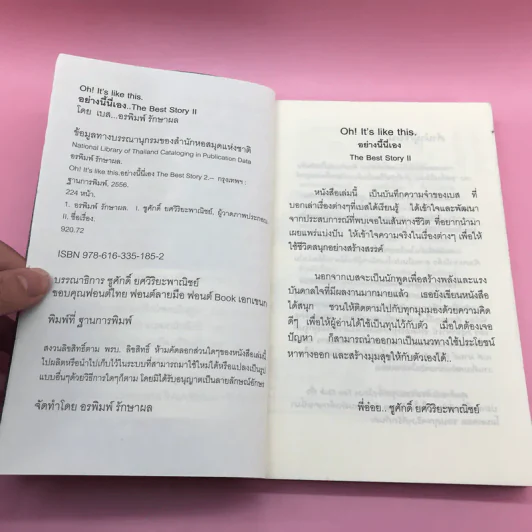 Oh! It's like this.
อย่างนี้นี่เอง..The Best Story II
โดย เบส...อรพิมพ์ รักษาผล
ข้อมูลทางบรรณานุกรมของสำนักหอสมุดแห่งชาติ
National Library of Thailand Cataloging in Publication Data
อรพิมพ์ รักษาผล.
Oh! It's like this.อย่างนี้นี่เอง The Best Story 2.-- กรุงเทพฯ :
ฐานการพิมพ์, 2556.
224 หน้า.
1. อรพิมพ์ รักษาผล. I. ชูศักดิ์ ยศวิริยะพาณิชย์, ผู้วาดภาพประกอบ
II. ชื่อเรื่อง.
920.72
ISBN 978-616-335-185-2
บรรณาธิการ ชูศักดิ์ ยศวิริยะพาณิชย์
ขอบคุณฟอนต์ไทย ฟอนต์ลายมือ ฟอนต์ Book เอกเขนก
พิมพ์ที่ ฐานการพิมพ์
สงวนลิขสิทธิ์ตาม พรบ. ลิขสิทธิ์ ห้ามคัดลอกส่วนใดๆของหนังสือเล่มนี้
ไปผลิตหรือนำไปเก็บไว้ในระบบที่สามารถมาใช้ใหม่ได้หรือแปลงเป็นรูป
แบบอื่นๆด้วยวิธีการใดๆก็ตาม โดยมิได้รับอนุญาตเป็นลายลักษณ์อักษร
จัดทำโดย อรพิมพ์ รักษาผล
Oh! It's like this.
อย่างนี้นี่เอง
The Best Story II
หนังสือเล่มนี้ เป็นบันทึกความจำของเบส ที่
บอกเล่าเรื่องต่างๆที่เบสได้เรียนรู้ ได้เข้าใจและพัฒนา
จากประสบการณ์ที่พบเจอในเส้นทางชีวิต ที่อยากนำมา
เผยแพร่แบ่งปัน ให้เข้าใจความจริงในเรื่องต่างๆ เพื่อให้
ใช้ชีวิตสนุกอย่างสร้างสรรค์
นอกจากเบสจะเป็นนักพูดเพื่อสร้างพลังและแรง
บันดาลใจที่มีผลงานมากมายแล้ว เธอยังเขียนหนังสือ
ได้สนุก ชวนให้ติดตามไปกับทุกมุมมองด้วยความคิด
ดีๆ เพื่อให้ผู้อ่านได้ใช้เป็นทุนไว้กับตัว เมื่อใดต้องเจอ
ปัญหา ก็สามารถนำออกมาเป็นแนวทางใช้ประโยชน์
หาทางออก และสร้างมุมสุขให้กับตัวเองได้..
พี่อ๋อย.. ชูศักดิ์ ยศวิริยะพาณิชย์